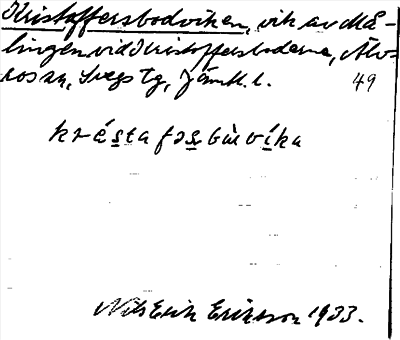 Kristoffersbodviken, vik av Må-
lingen vid Kristoffersboderna, Älv-
rosan, Svegs tg, Jämtl. l. 49
kréstafəsbùvíka
Nils Erik Eriksson 1933.